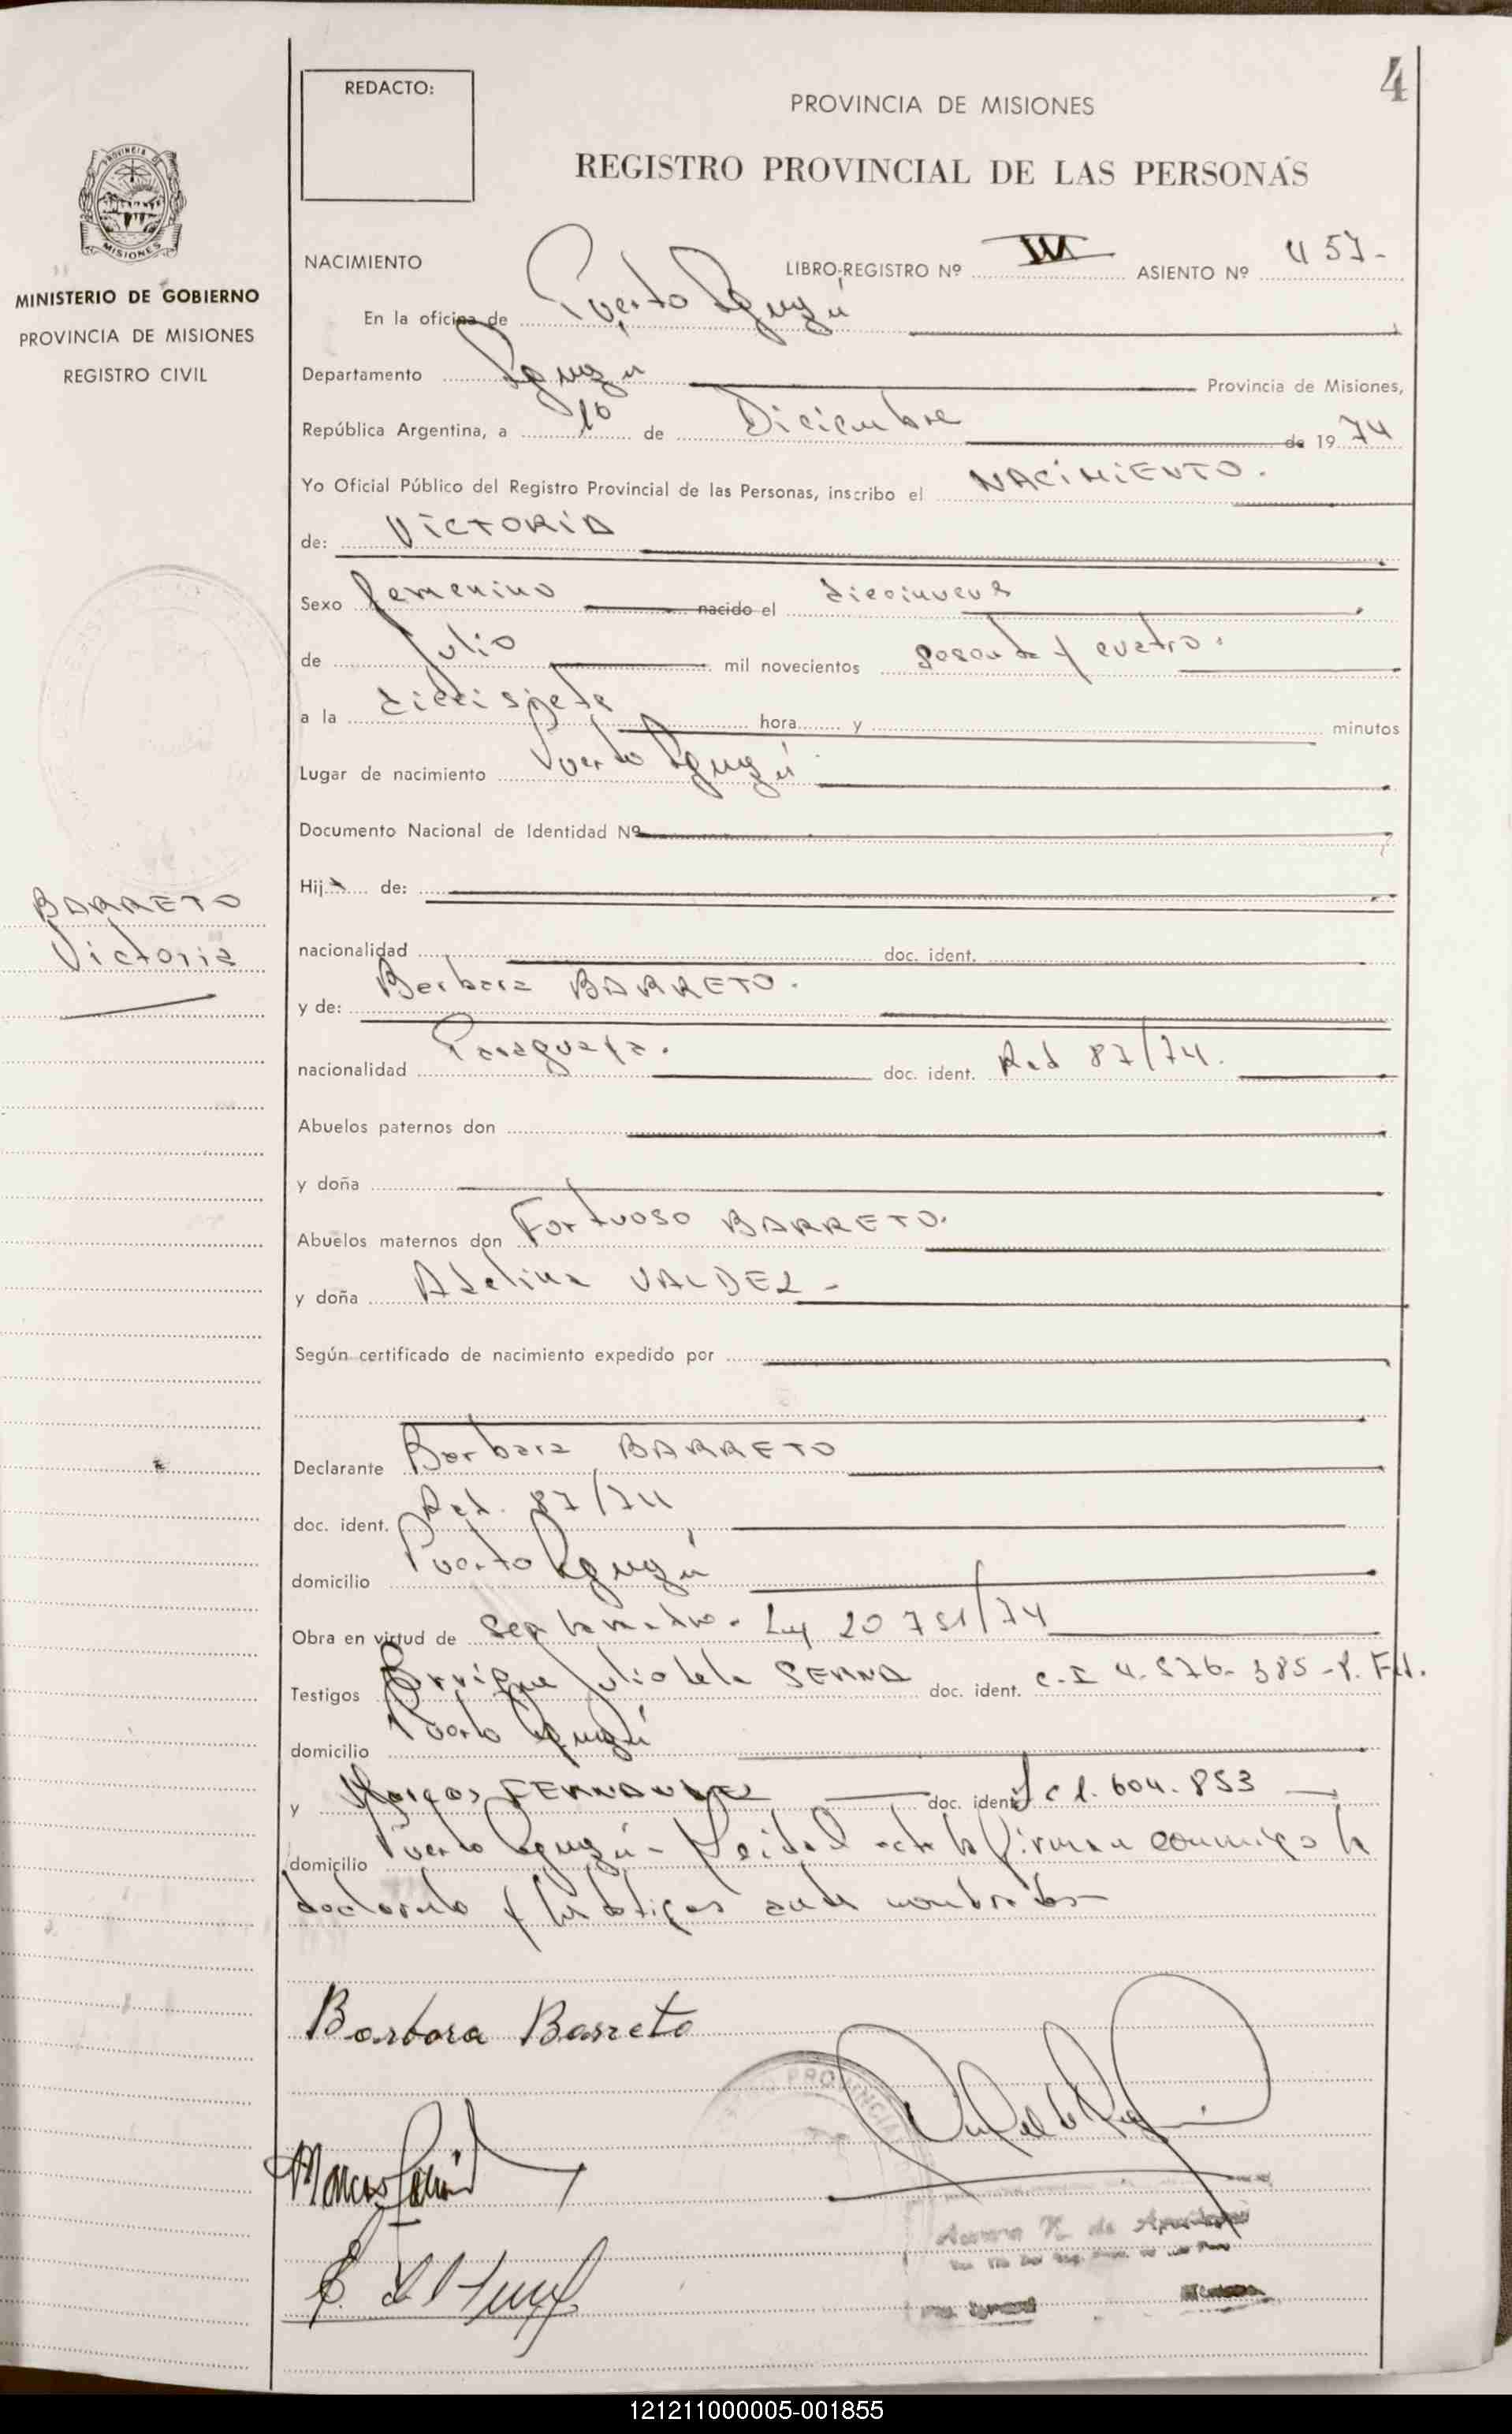 4
REDACTO:
PROVINCIA DE MISIONES
REGISTRO PROVINCIAL DE LAS PERSONAS
PROVINCIA DE
MISIONES
MINISTERIO DE GOBIERNO
PROVINCIA DE MISIONES
REGISTRO CIVIL
NACIMIENTO LIBRO-REGISTRO Nº III ASIENTO Nº 457-
En la oficina de Puerto Iguazú
Departamento Iguazú Provincia de Misiones,
República Argentina, a 10 de Diciembre de 1974
Yo Oficial Público del Registro Provincial de las Personas, inscribo el NACIMIENTO.
de: VICTORIA
Sexo femenino nacido el diecinueve
de Julio mil novecientos sesenta y cuatro.
a la diecisiete hora y minutos
Lugar de nacimiento Puerto Iguazú
Documento Nacional de Identidad Nº
Hija de:
BARRETO
Victoria
nacionalidad doc. ident.
y de: Barbara BARRETO.
nacionalidad Paraguaya. doc. ident. Red 87/74.
Abuelos paternos don
y doña
Abuelos maternos don Fortuoso BARRETO.
y doña Adelina VALDEZ-
Según certificado de nacimiento expedido por
Declarante Barbara BARRETO
doc. ident. Red. 87/74
domicilio Puerto Iguazú
Obra en virtud de Ley 20751/74
Testigos Enrique Julio de la SERNA doc. ident. C.I 4.576.385-P. Fed.
domicilio Puerto Iguazú
y Marcos FERNANDEZ doc. ident. 1.604.853
domicilio Puerto Iguazú- Leida el acta la firman conmigo la
declarante y los testigos nombrados-
Barbora Barreto
PROVINCIAL
Marcos
121211000005-001855